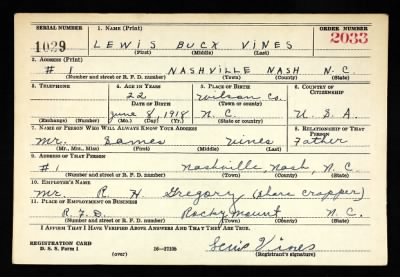 SERIAL NUMBER 1. NAME (Print) ORDER NUMBER
1029 LEWIS BUCX VINES 2033
(First) (Middle) (Last)
2. ADDRESS (Print)
#1 NASHVILLE NASH N.C.
(Number and street or R. F. D. number) (Town) (County) (State)
3. TELEPHONE 4. AGE IN YEARS 5. PLACE OF BIRTH 6. COUNTRY OF CITIZENSHIP
22 Wilson Co.
DATE OF BIRTH (Town or county)
June 8, 1918 N.C. U.S.A.
(Exchange) (Number) (Mo.) (Day) (Yr.) (State or country)
7. NAME OF PERSON WHO WILL ALWAYS KNOW YOUR ADDRESS 8. RELATIONSHIP OF THAT PERSON
Mr. James Vines Father
(Mr., Mrs., Miss) (First) (Middle) (Last)
9. ADDRESS OF THAT PERSON
#1 Nashville, Nash, N.C.
(Number and street or R. F. D. number) (Town) (County) (State)
10. EMPLOYER'S NAME
Mr. R. H. Gregory (share cropper)
11. PLACE OF EMPLOYMENT OR BUSINESS
R.F.D. Rocky Mount N.C.
(Number and street or R. F. D. number) (Town) (County) (State)
I AFFIRM THAT I HAVE VERIFIED ABOVE ANSWERS AND THAT THEY ARE TRUE.
REGISTRATION CARD
D. S. S. Form 1 16—17105 Vines
(over) (Registrant's signature)